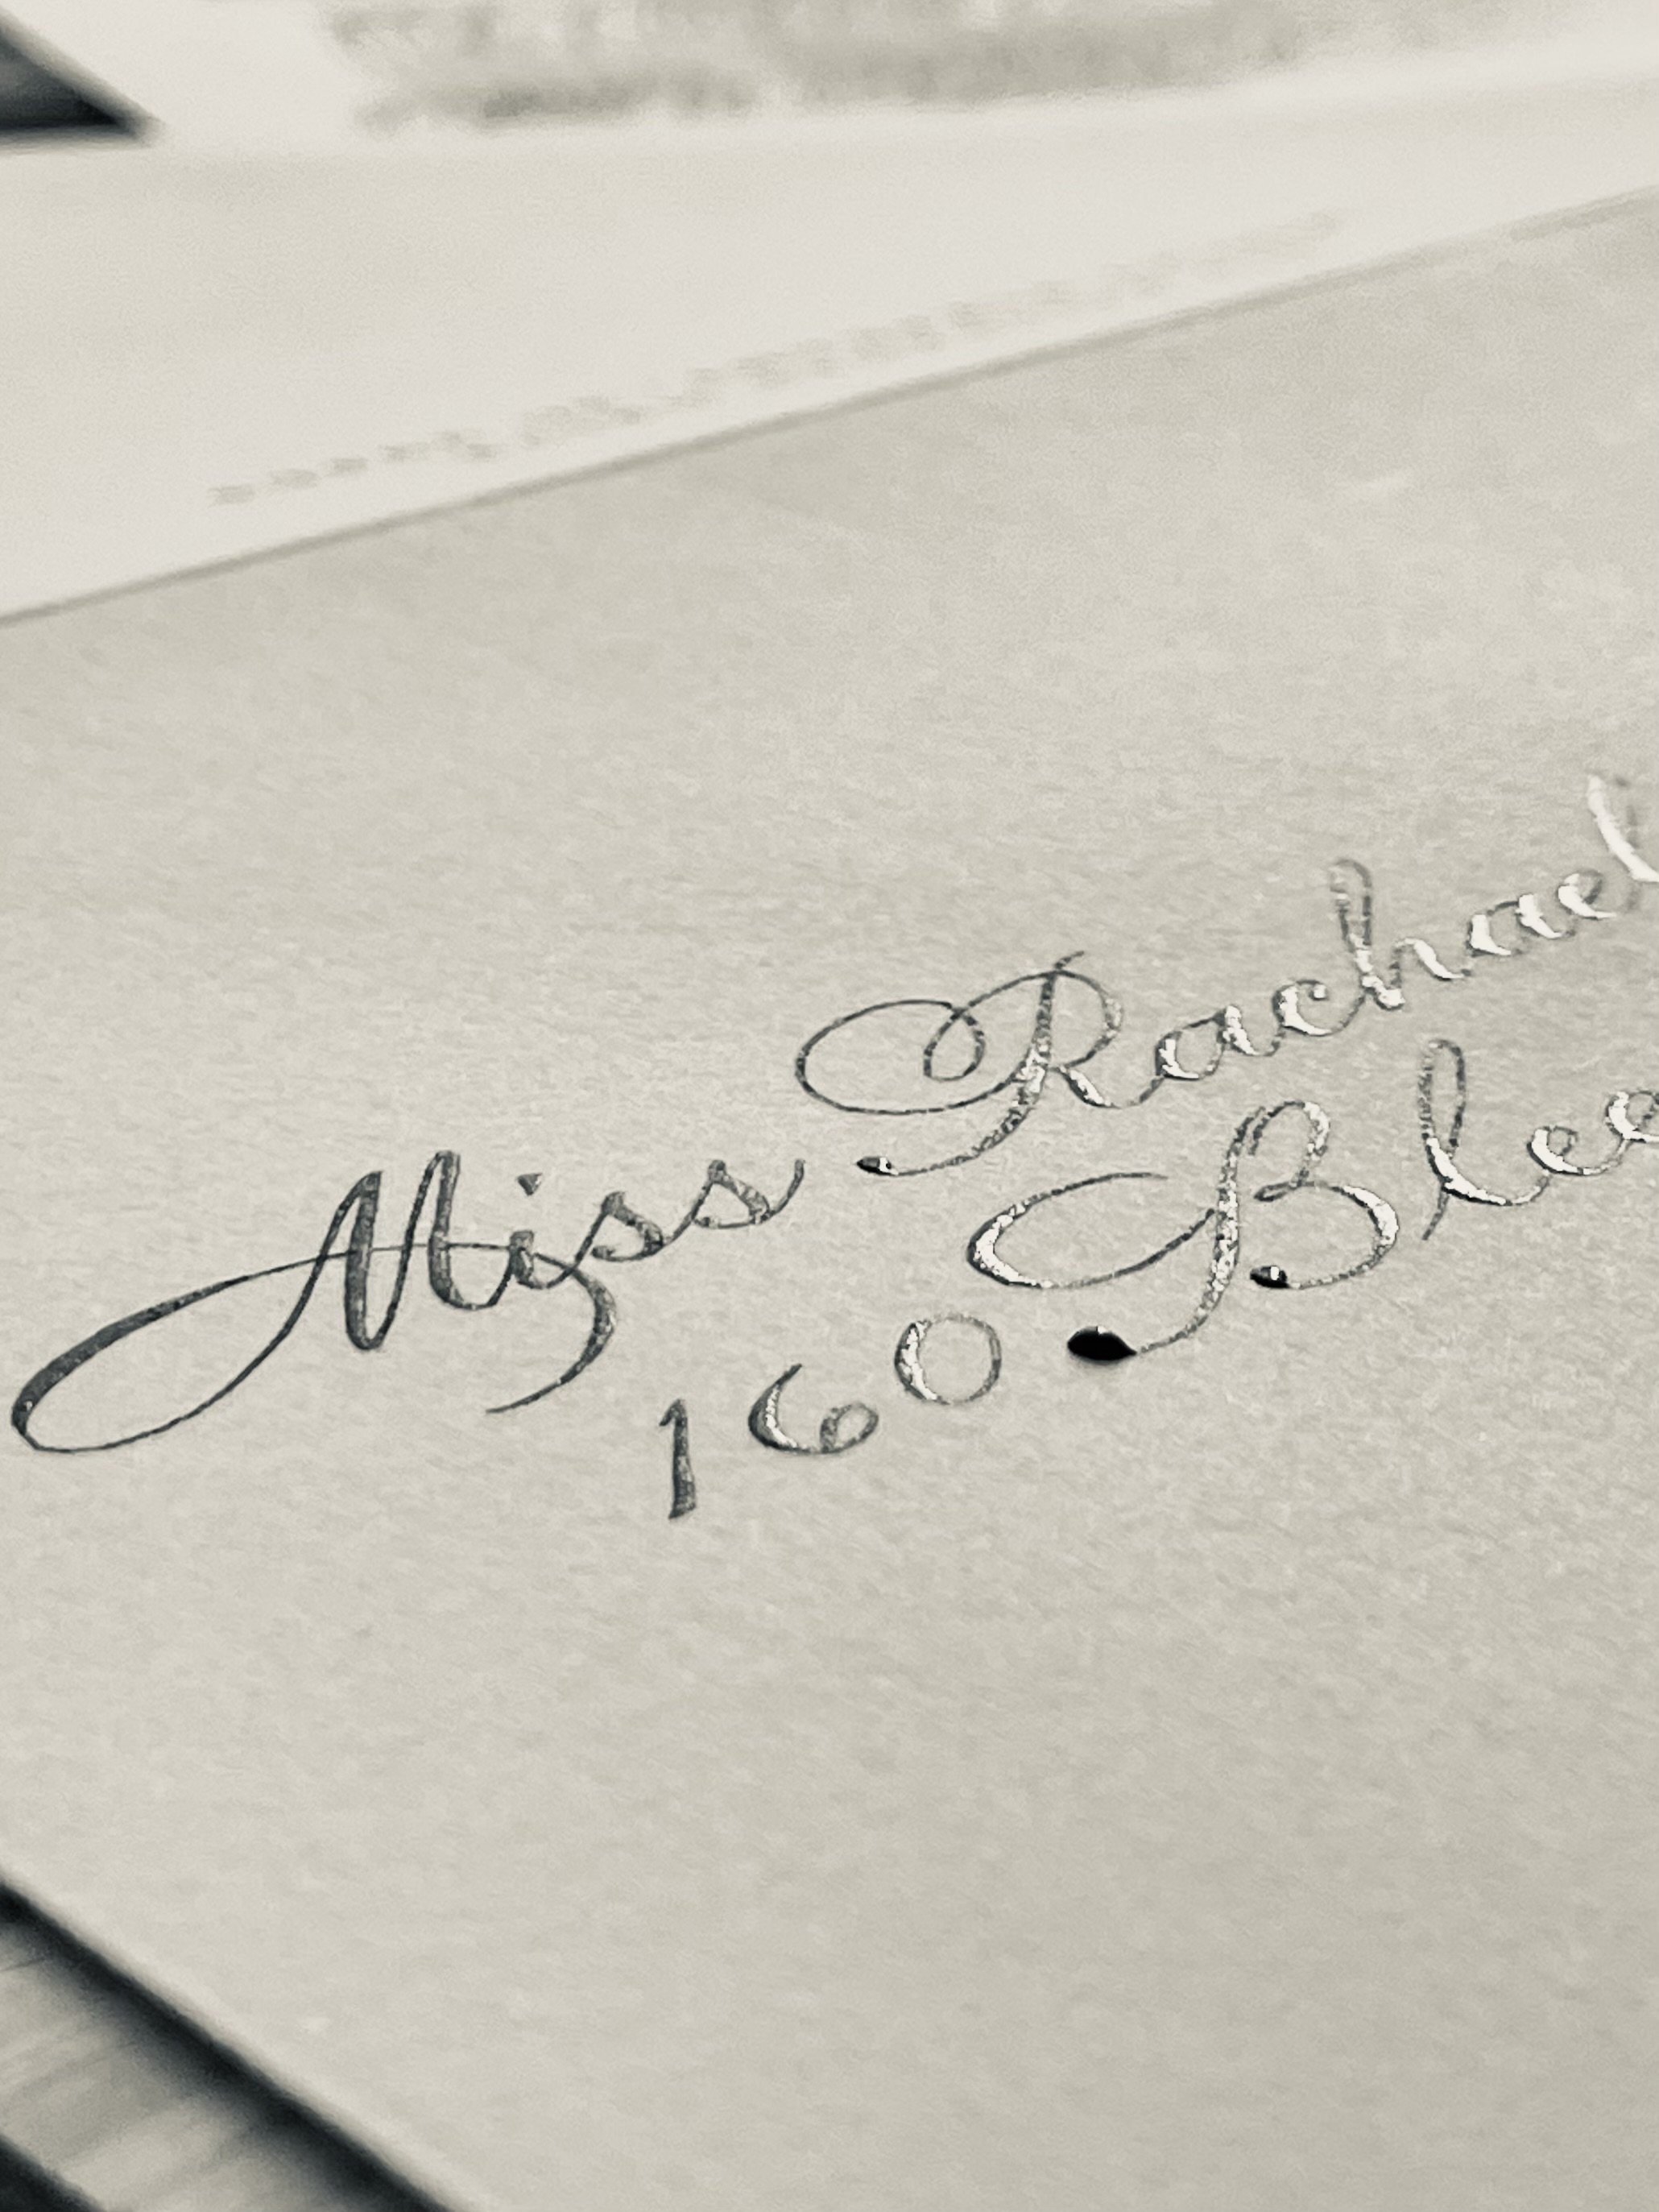 Miss Rachael
160 Blee